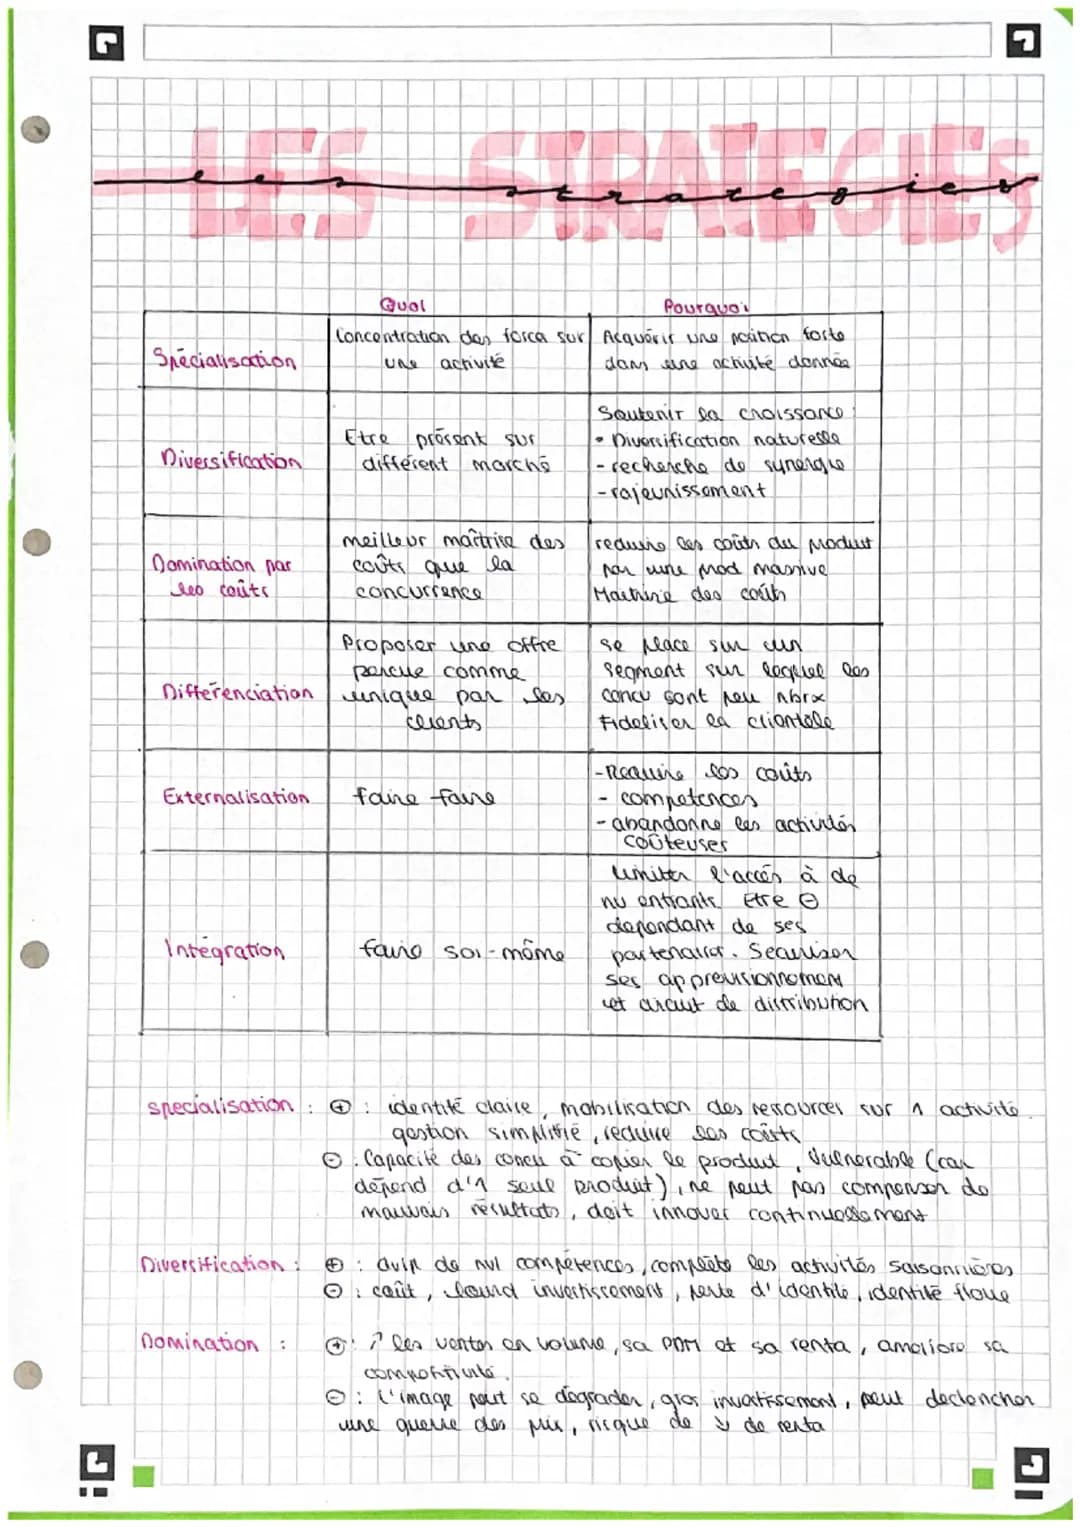 LES STRATEGIES
les strategies
Quoi Pourquoi
Spécialisation
Concentration des force sur
une activité
Acquérir une position forte
dans une activité donnée
Diversification
Etre présent sur
différent marché
Soutenir la croissance :
• Diversification naturelle
- recherche de synergie
- rajeunissement
Domination par
les coûts
meilleur maîtrise des
coûts que la
concurrence
reduire les coûts du produit
par une prod massive
Maitrise des coûts
Differenciation
Proposer une offre
percue comme
unique par les
clients
se place sur un
segment sur lequel les
concu sont peu nbrx
Fideliser la clientèle
Externalisation
faire faire
- Reduire les coûts
- competences
- abandonne les activités
coûteuses
Intégration
faire soi-même
Limiter l'accès à de
nv entrants Etre ⊖
dependant de ses
partenaires. Securiser
ses approvisionnement
et circuit de distribution
specialisation : ⊕ : identité claire, mobilisation des ressources sur 1 activité
gestion simplifié, reduire les coûts
⊖ : Capacité des concu à copier le produit, Vulnerable (car
dépend d'1 seul produit), ne peut pas compenser de
mauvais résultats, doit innover continuellement
Diversification : ⊕ : dvlp de nvl compétences, complète les activités saisonnières
⊖ : coût, lourd investissement, perte d'identité, identité floue
Domination : ⊕ : ↗ les ventes en volume, sa PDM et sa renta, ameliore sa
competitivité.
⊖ : l'image peut se dégrader, gros investissement, peut declencher
une guerre des prix, risque de ↘ de renta